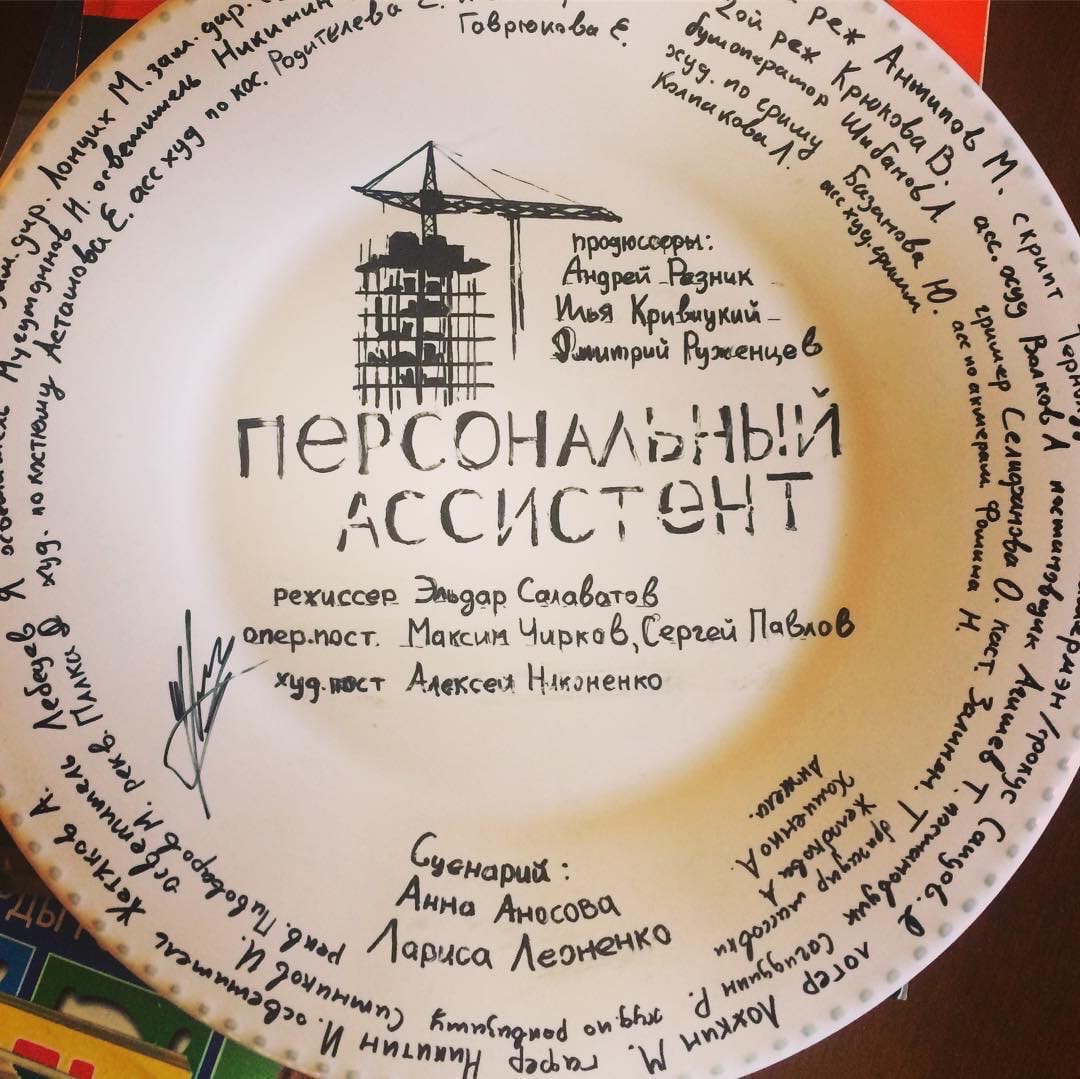 продюссеры:
Андрей Резник
Илья Кривицкий
Дмитрий Руженцев
ПЕРСОНАЛЬНЫЙ
АССИСТЕНТ
режиссер Эльдар Салаватов
опер.пост. Максим Чирков, Сергей Павлов
худ.пост Алексей Никоненко
Сценарий:
Анна Аносова
Лариса Леоненко
реж Антипов М. скрипт
2ой реж Крюкова В. асс. худ Волков Л постановщик Агишев Т. постановщик Сагидуллин Р. худ. по реквизиту Ситников И. рекв. Пивоваров М. рекв. Палка Д худ. по костюму Асташова Е. асс худ по кос. Родителева Е.
Гаврюкова Е.
бумоператор Шибанов Л. гример Селифанова О. кост. Залинам. Т бригадир массовки
худ. по гриму Базанова Ю. асс по актерам Фомина Н.
Колпакова Л. асс худ.грима
фокус Саидов. Д логер Ложкин М. гафер Никитин И. осветитель Хетяков А. осветитель Лебедев Я осветитель Мугутдинов Н. осветитель Никитин
зам. дир. Лонщих М. зам. дир.
Холодкова А
Хомиченко А
Анжела.
ДЫ